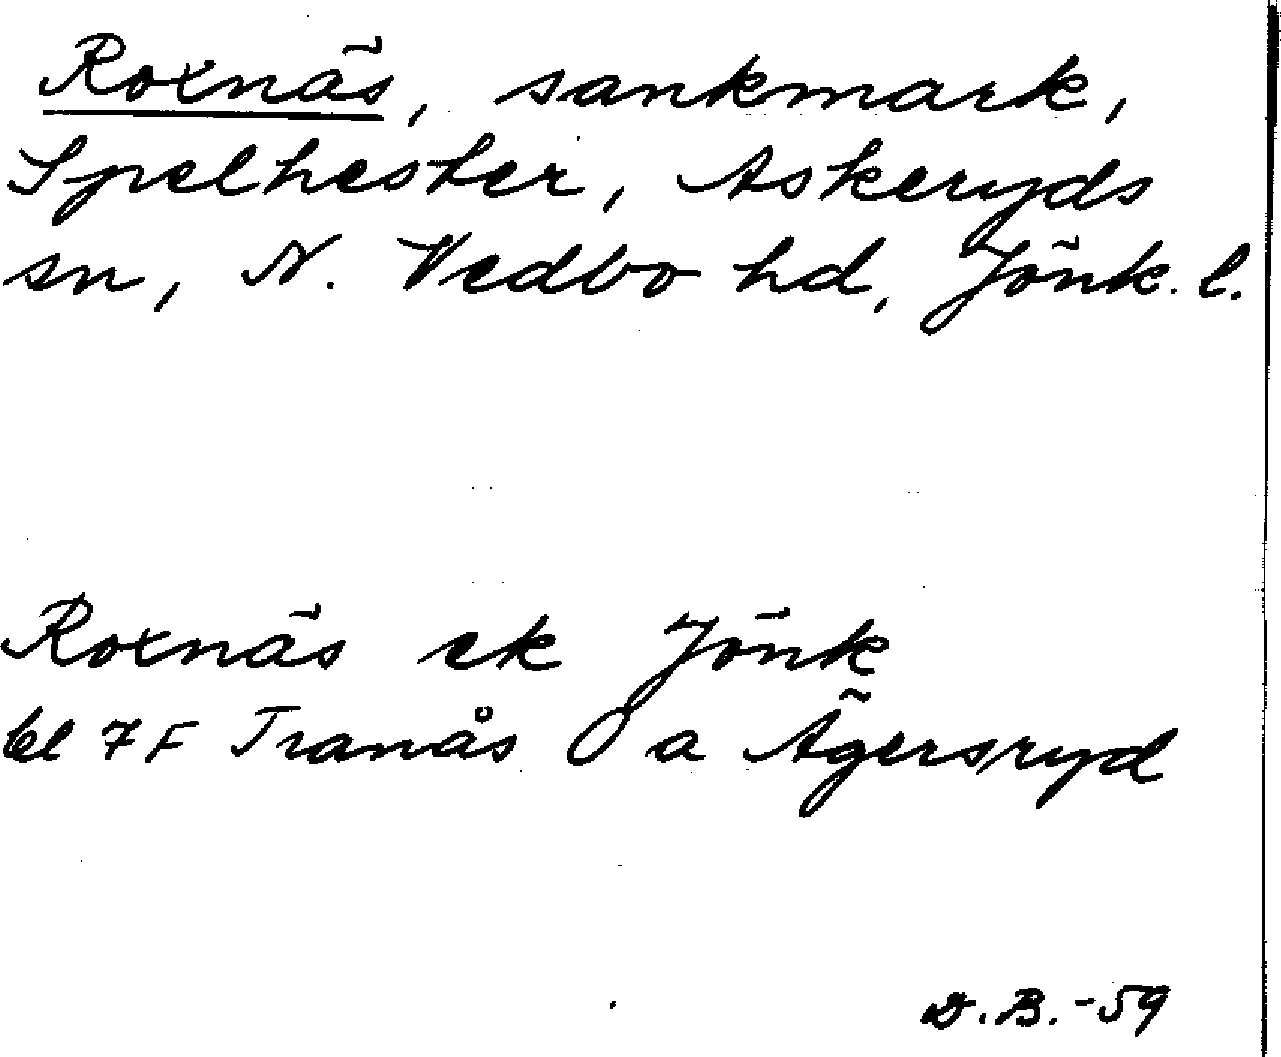 Roxnäs, sankmark,
Spelhester, Askeryds
sn, N. Vedbo hd, Jönk. l.
Roxnäs ek Jönk
bl 7F Tranås 0 a Ägersryd
D.B.-59